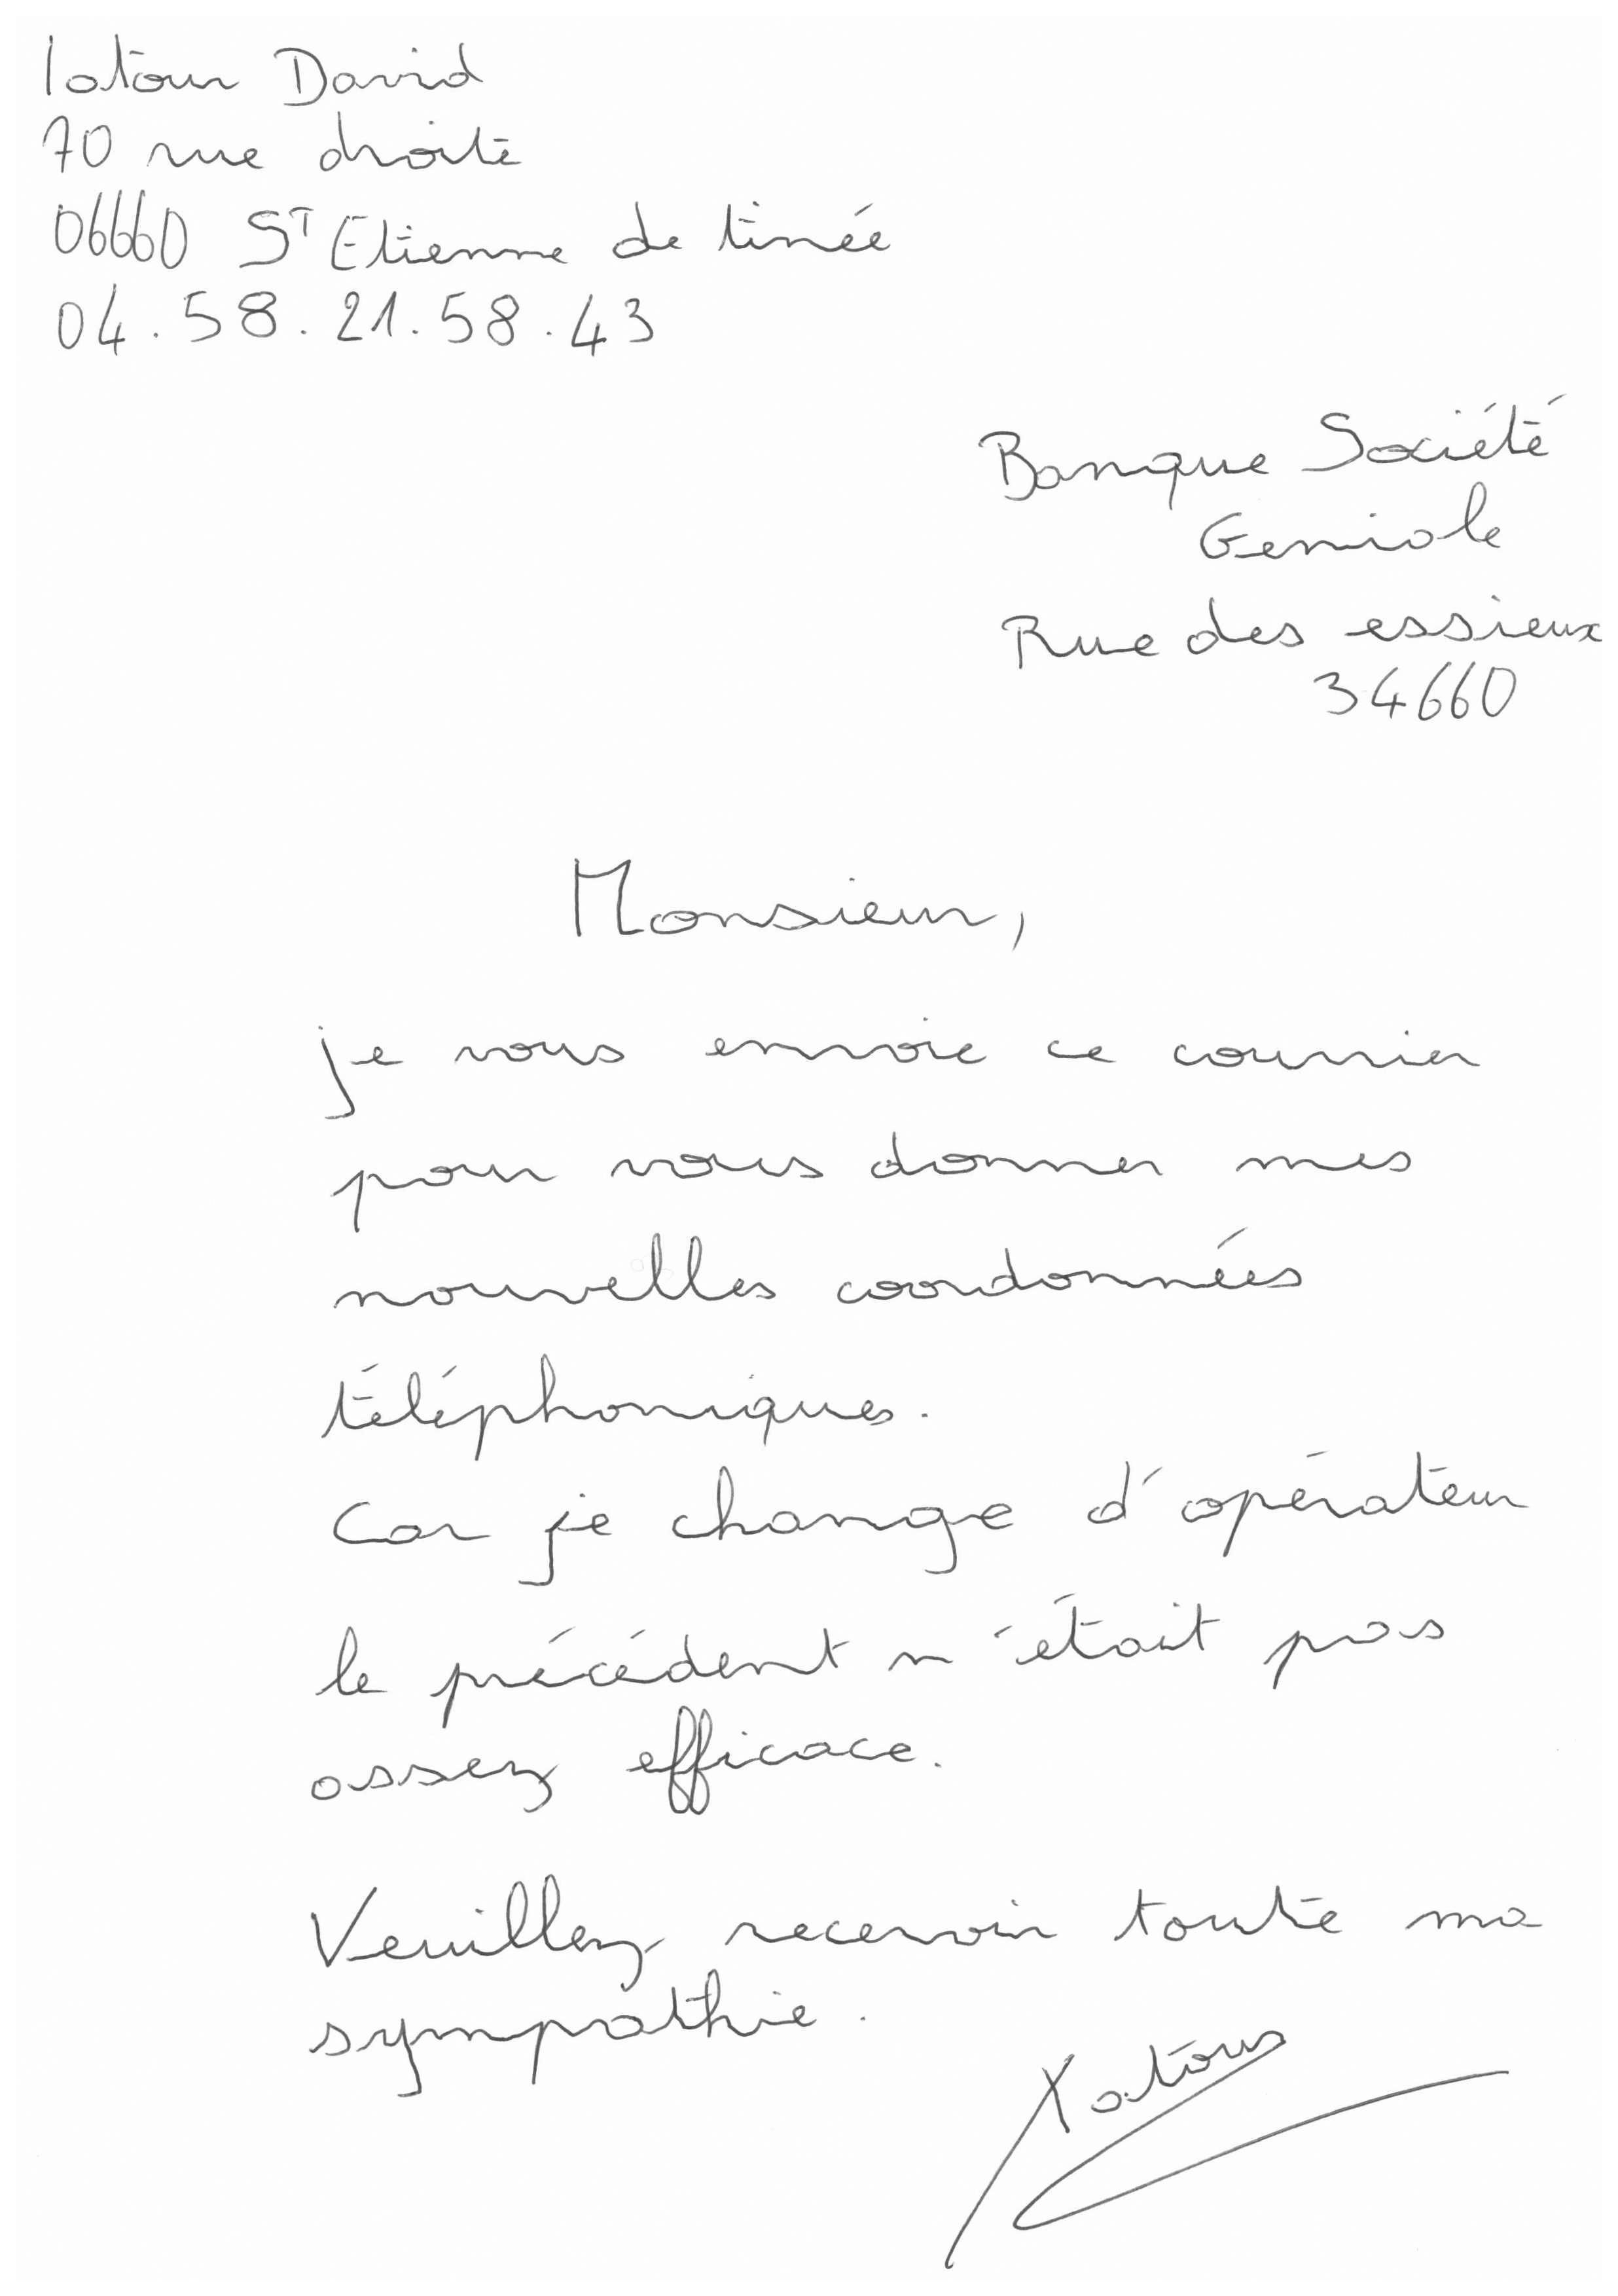 latour David
70 rue droite
06660 ST Etienne de tinée
04.58.21.58.43
Banque Société
Geniale
Rue des essieux
34660
Monsieur,
je vous envoie ce courrier
pour vous donner mes
nouvelles coordonnées
téléphoniques.
Car je change d'opérateur
le précédent n'était pas
assez efficace.
Veuillez recevoir toute ma
sympathie.
Latour